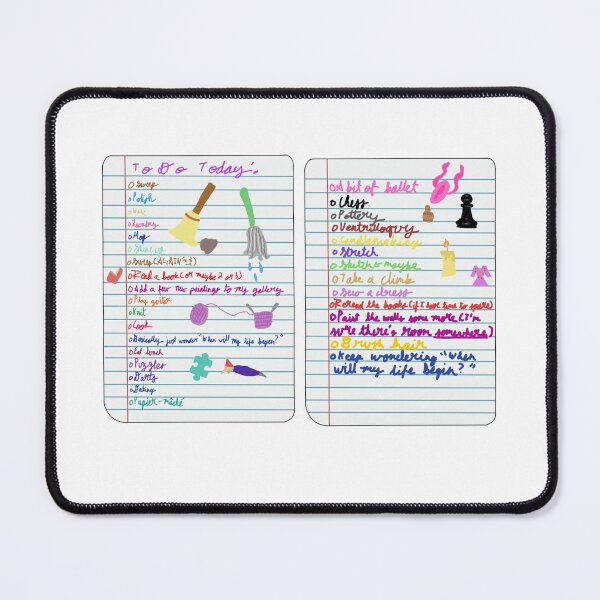 To Do Today:
o Sweep
o Polish
o Wax
o Laundry
o Mop
o Shine up
o Sweep (AGAIN
o Read a book (or maybe 2 or 3)
o Add a few new paintings to my gallery
o Play guitar
o Knit
o Cook
o Basically just wonder "When will my life begin?"
o Eat lunch
o Puzzles
o Darts
o Baking
o Papier-mâché
o A bit of ballet
o Chess
o Pottery
o Ventriloquy
o Candlemaking
o Stretch
o Sketch maybe
o Take a climb
o Sew a dress
o Reread the books (if I have time to spare)
o Paint the walls some more (I'm
sure there's room somewhere)
o Brush hair
o Keep wondering "When
will my life begin?"